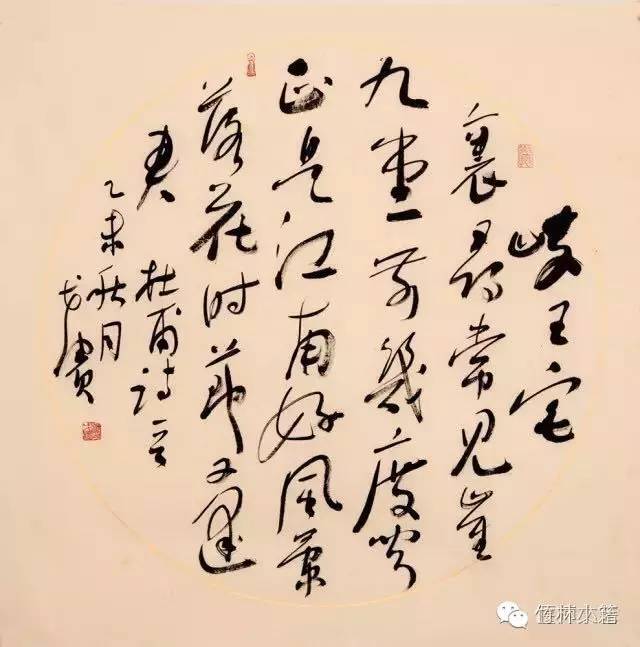 岐王宅
裏尋常見崔
九堂前幾度聞
正是江南好風景
落花时節又逢
君 杜甫詩
乙未秋月